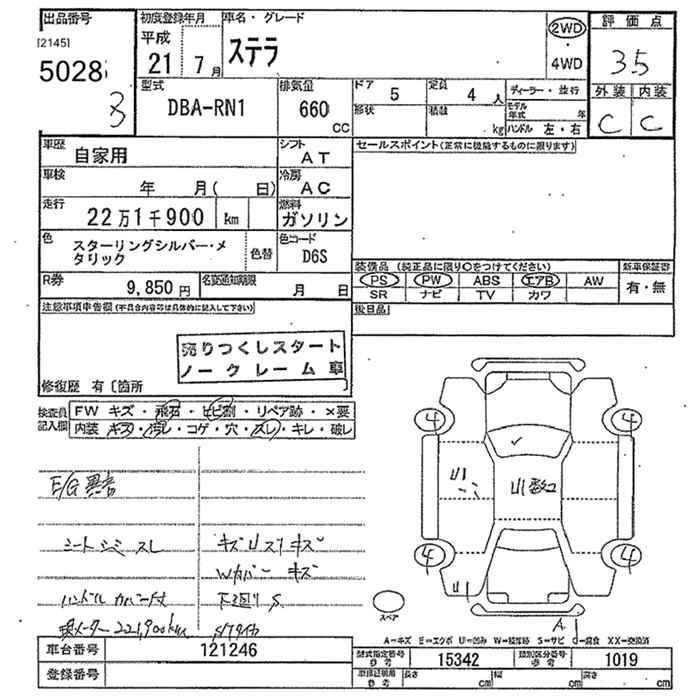 出品番号
[2145]
5028
3
初度登録年月
平成
21 7月
車名・グレード
ステラ
2WD
4WD
評価点
3.5
外装 内装
C C
型式
DBA-RN1
排気量
660
CC
ドア 5
定員 4 人
形状
積載 kg
ディーラー・並行
モデル年式 年
ハンドル 左・右
車歴
自家用
シフト
AT
車検
年 月( 日)
冷房
AC
走行
22万1千900 km
燃料
ガソリン
色
スターリングシルバー・メタリック
色替
色コード
D6S
R券
9,850円
名変通知期限
月 日
セールスポイント(正常に機能するものに限ります)
装備品 (純正品に限り〇をつけてください)
PS PW ABS エアB AW
SR ナビ TV カワ
新車保証書
有・無
後日品
注意事項申告欄(不具合内容等は具体的に記入して下さい)
売りつくしスタート
ノークレーム車
修復歴 有〔箇所
検査員記入欄
FW キズ・飛石・ヒビ割・リペア跡・×要
内装 キズ・汚レ・コゲ・穴・スレ・キレ・破レ
E/G異音
シートシミ スレ
キズUスリキズ
Wカバー キズ
ハンドルカバー付
下廻りS
現メーター221,900km
4
4
4
4
U1
U1
スペア
A
A=キズ E=エクボ U=凹み W=補修跡 S=サビ C=腐食 XX=交換済
車台番号
121246
登録番号
型式指定番号
参考
15342
類別区分番号
参考
1019
車検証明用
参考
長さ cm
幅 cm
高さ cm